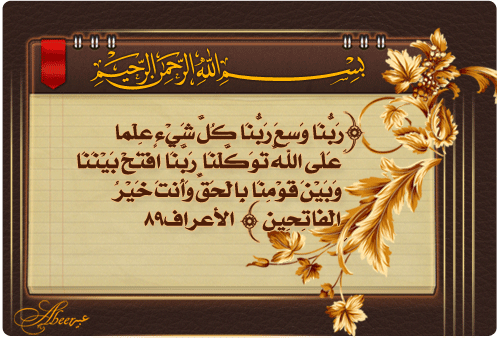 بسم الله الرحمن الرحيم
﴿رَبُّنَا وَسِعَ رَبُّنَا كُلَّ شَيْءٍ عِلْما
عَلَى اللَّهِ تَوَكَّلْنَا رَبَّنَا افْتَحْ بَيْنَنَا
وَبَيْنَ قَوْمِنَا بِالْحَقِّ وَأَنتَ خَيْرُ
الْفَاتِحِينَ﴾ الأعراف٨٩
Abeer عبير